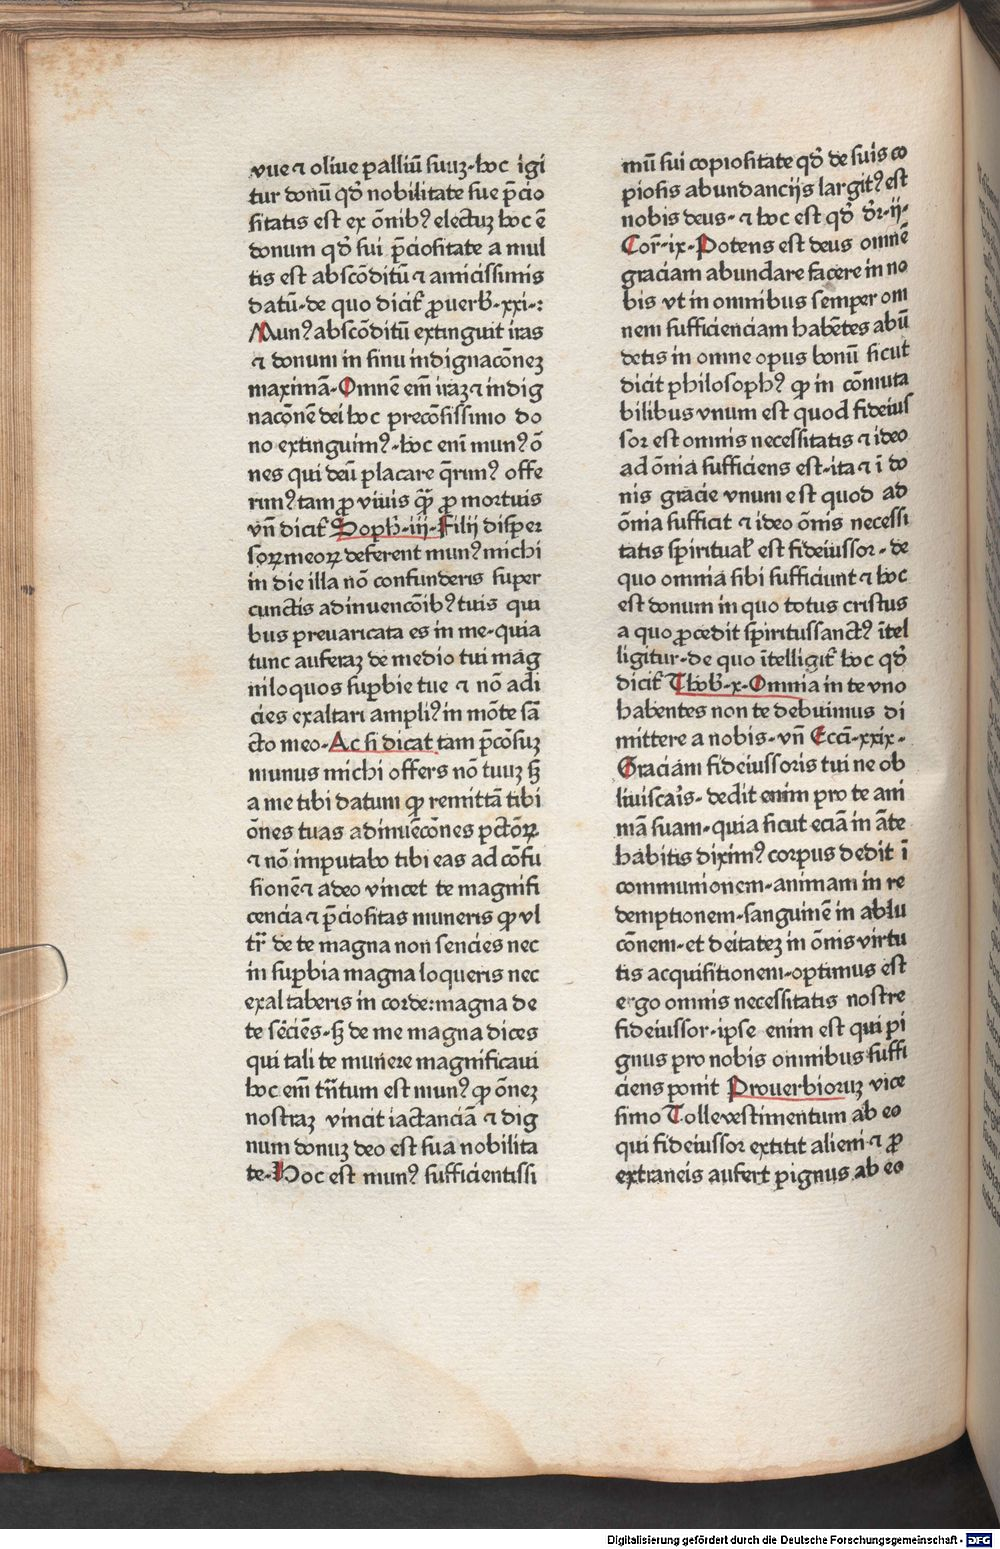 vue ⁊ oliue palliū suuꝫ·hoc igi
tur donū qd̛ nobilitate sue p̄cio
sitatis est ex ōnibꝰ electuꝫ hoc ē
donum qd̛ sui p̄ciositate a mul
tis est abscōditū ⁊ amicissimis
datū·de quo dicit̛ ꝓuerb̛·xxi·:
Munꝰ abscōditū extinguit iras
⁊ donum in sinu indignacōneꝫ
maximā·Omnē em̄ iraꝫ ⁊ indig
nacōnē dei hoc preciōsissimo do
no extinguimꝰ·hoc eni munꝰ ō
nes qui deū placare q̄rimꝰ offe
rimꝰ tam ꝓ viuis qꝫ̄ ꝓ mortuis
vn̄ dicit̛ Soph̛·iii·Filij disper
soꝝ meoꝝ deferent munꝰ michi
in die illa nō confunderis super
cunctis adinuencōibꝰ tuis qui
bus preuaricata es in me·quia
tunc auferaꝫ de medio tui mag
niloquos sup̱bie tue ⁊ nō adi
cies exaltari ampliꝰ in mōte sā
cto meo·Ac si dicat tam p̄cōsuꝫ
munus michi offers nō tuuꝫ sꝫ
a me tibi datum ꝙ remittā tibi
ōnes tuas adinuēcōnes pctōꝝ
⁊ nō imputabo tibi eas ad cōfu
sionē ⁊ adeo vincet te magnifi
cencia ⁊ p̄ciositas muneris ꝙ vl
tr̄ de te magna non sencies nec
in sup̱bia magna loqueris nec
exaltaberis in corde:magna de
te sēciēs·sꝫ de me magna dices
qui tali te munere magnificaui
hoc em̄ tn̄tum est munꝰ ꝙ ōneꝫ
nostraꝫ vincit iactanciā ⁊ dig
num donuꝫ deo est sua nobilita
te·Hoc est munꝰ sufficientissi
mū sui copiositate qd̛ de suis co
piosis abundancijs largitꝰ est
nobis deus·⁊ hoc est qd̛ dr̄·ij·
Cor̄·ix·Potens est deus omnē
graciam abundare facere in no
bis vt in omnibus semper om
nem sufficienciam habētes abū
detis in omne opus bonū sicut
dicit philosophꝰ ꝙ in cōmuta
bilibus vnum est quod fideius
sor est omnis necessitatis ⁊ ideo
ad ōnia sufficiens est·ita ⁊ ī do
nis gracie vnum est quod ad
ōnia sufficit ⁊ ideo ōnis necessi
tatis spiritual̛ est fideiussor·de
quo omnia sibi sufficiunt ⁊ hoc
est donum in quo totus cristus
a quo ꝓcedit spiritussanctꝰ ītel
ligitur·de quo ītelligit̛ hoc qd̛
dicit̛ Thob̛·x·Omnia in te vno
habentes non te debuimus di
mittere a nobis·vn̄ Ecci̅·xxix·
Graciam fideiussoris tui ne ob
liuiscaīs·dedit enim pro te ani
mā suam·quia sicut eciā in āte
habitis diximꝰ corpus dedit ī
communionem·animam in re
demptionem·sanguinē in ablu
cōnem·et deitateꝫ in ōnis virtu
tis acquisitionem·optimus est
ergo omnis necessitatis nostre
fideiussor·ipse enim est qui pi
gnus pro nobis omnibus suffi
ciens ponit Prouerbioruꝫ vice
simo Tolle vestimentum ab eo
qui fideiussor extitit alieni·⁊ ꝓ
extraneis aufert pignus ab eo
Digitalisierung gefördert durch die Deutsche Forschungsgemeinschaft - DFG